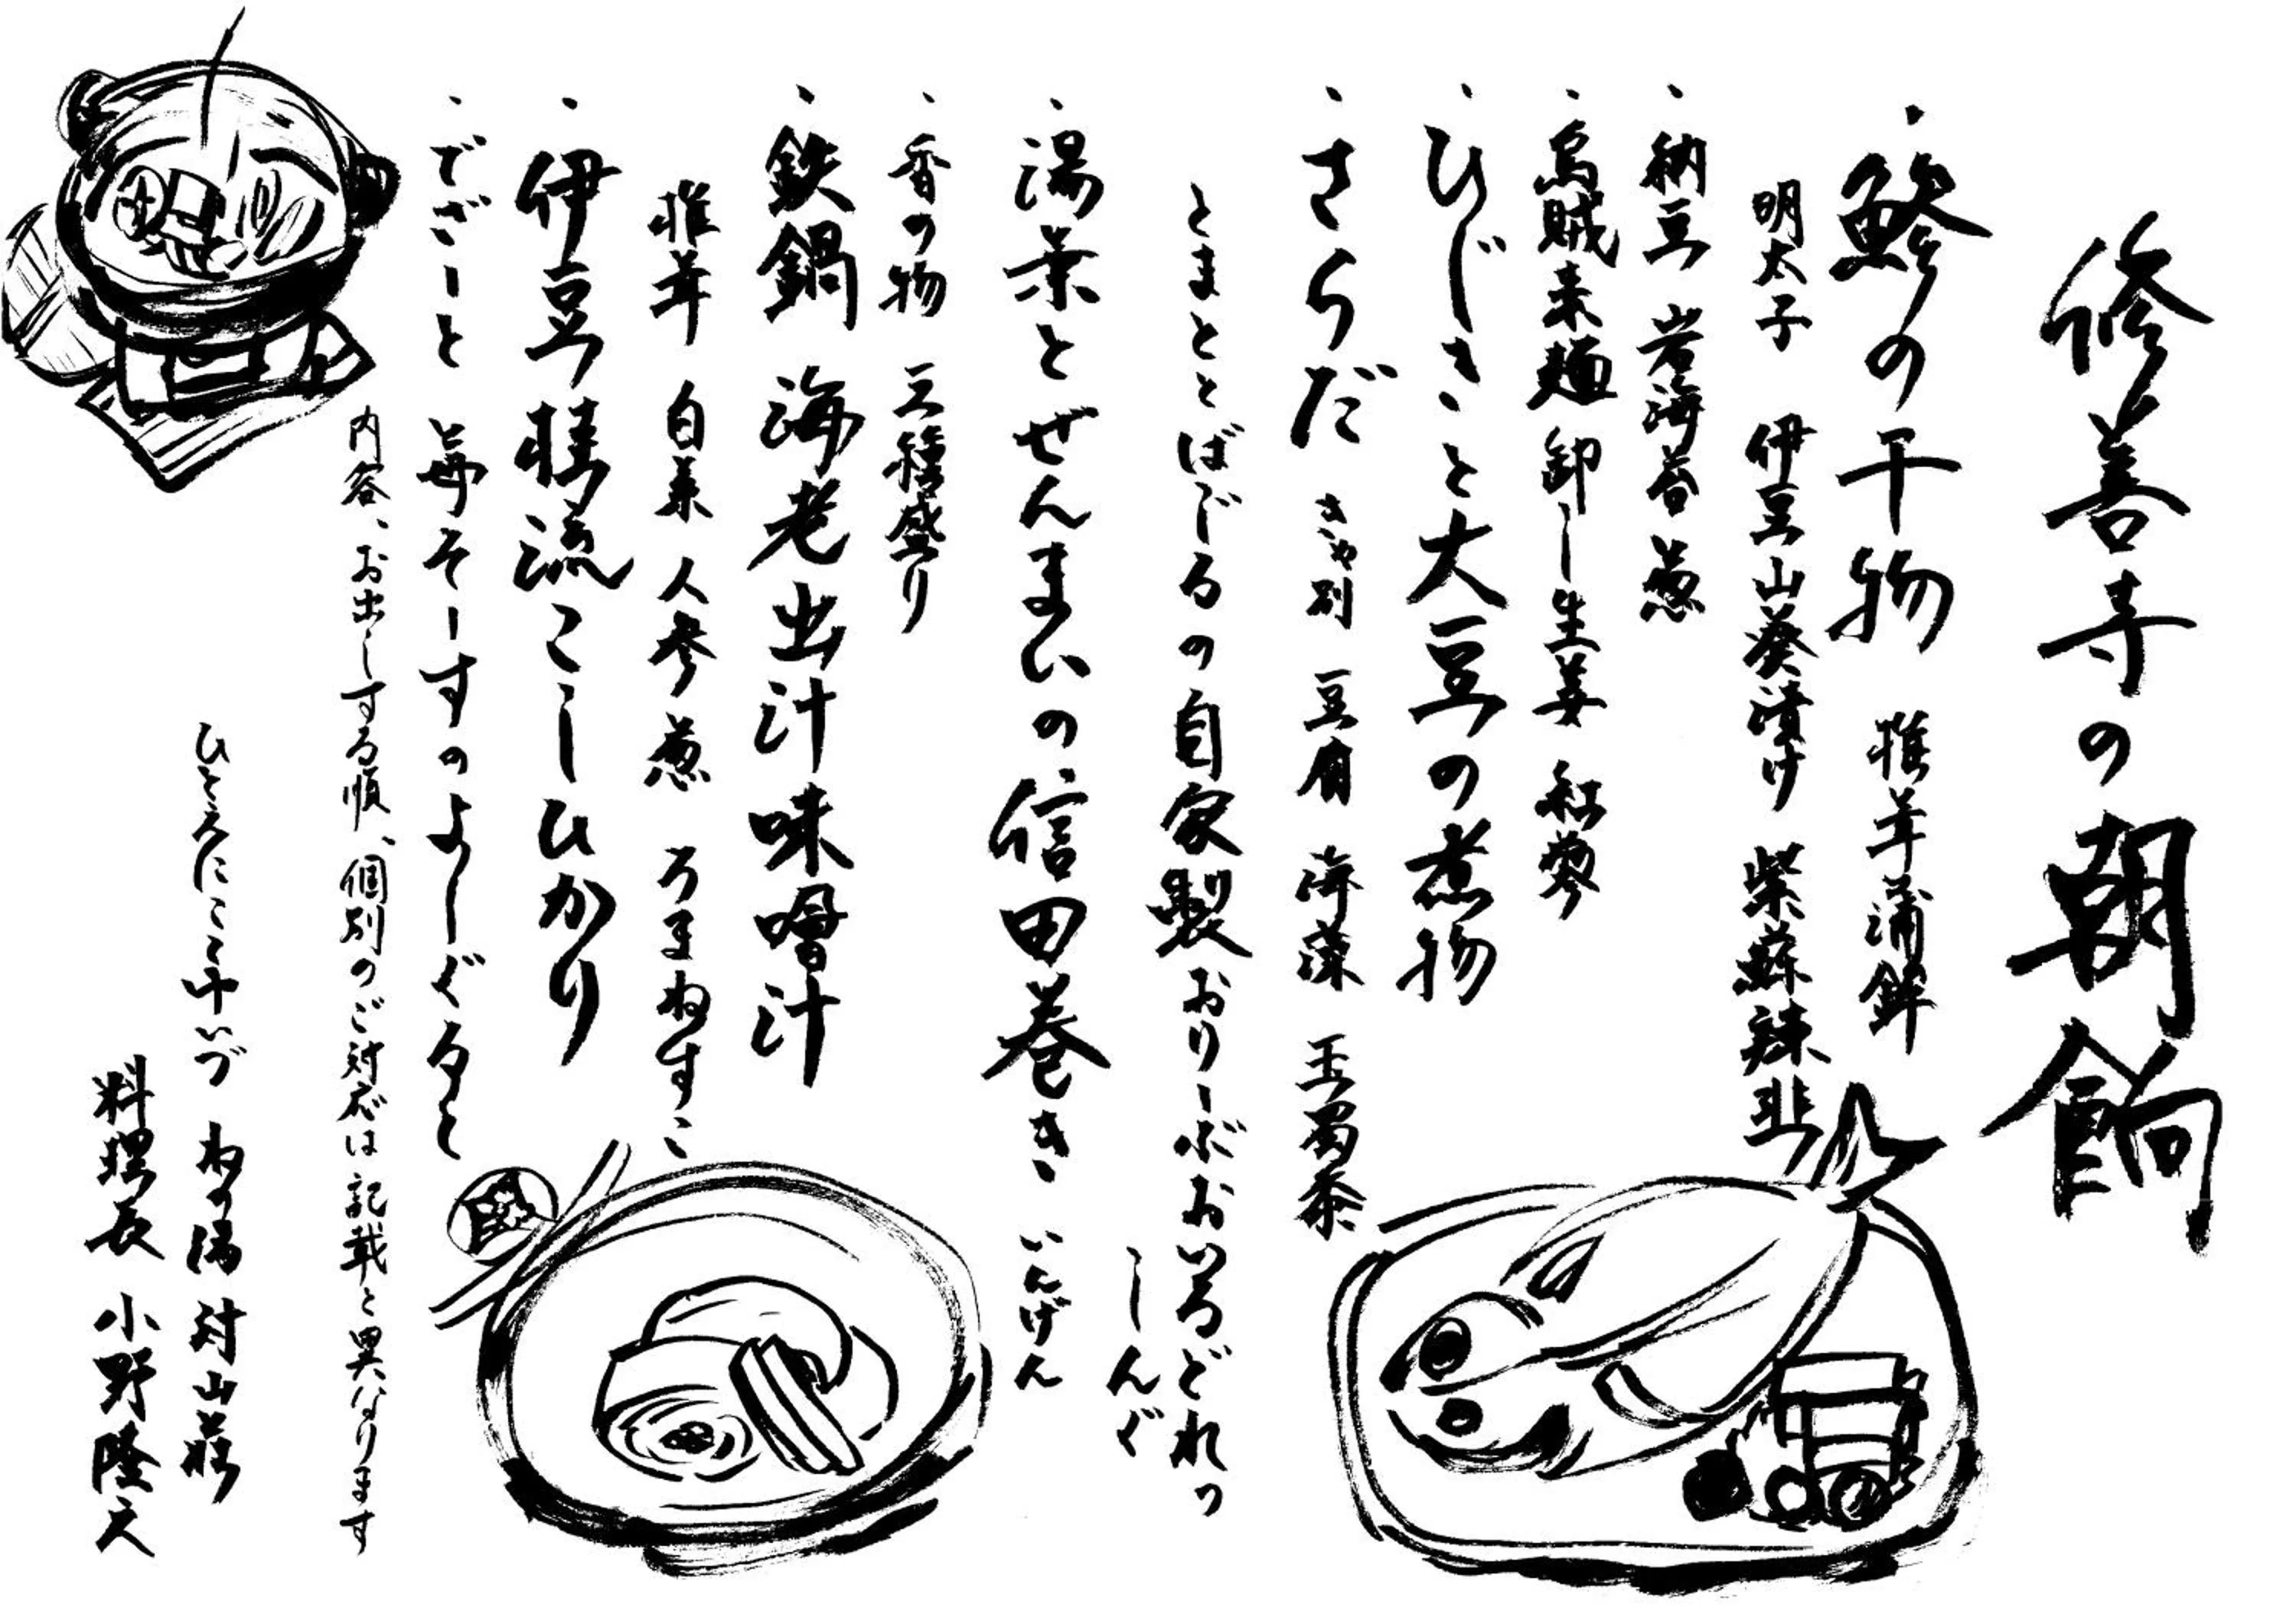 修善寺の朝餉
・鯵の干物 椎茸蒲鉾
明太子 伊豆山葵漬け 柴蘇辣韭
・納豆 岩海苔 葱
・烏賊素麺 卸し生姜 紅蓼
・ひじきと大豆の煮物
・さらだ きゃ別 豆腐 海藻 玉蜀黍
とまととばじるの自家製おりーぶおいるどれっ
しんぐ
・湯葉とぜんまいの信田巻き いんげん
・香の物 三種盛り
・鉄鍋 海老出汁味噌汁
椎茸 白菜 人参 葱 ろまねすこ
・伊豆韮流こしひかり
・でざーと 苺そーすのよーぐると
内容、お出しする順、個別のご対応は記載と異なります
ひとえにこころいづ ねの湯 対山荘
料理長 小野隆之